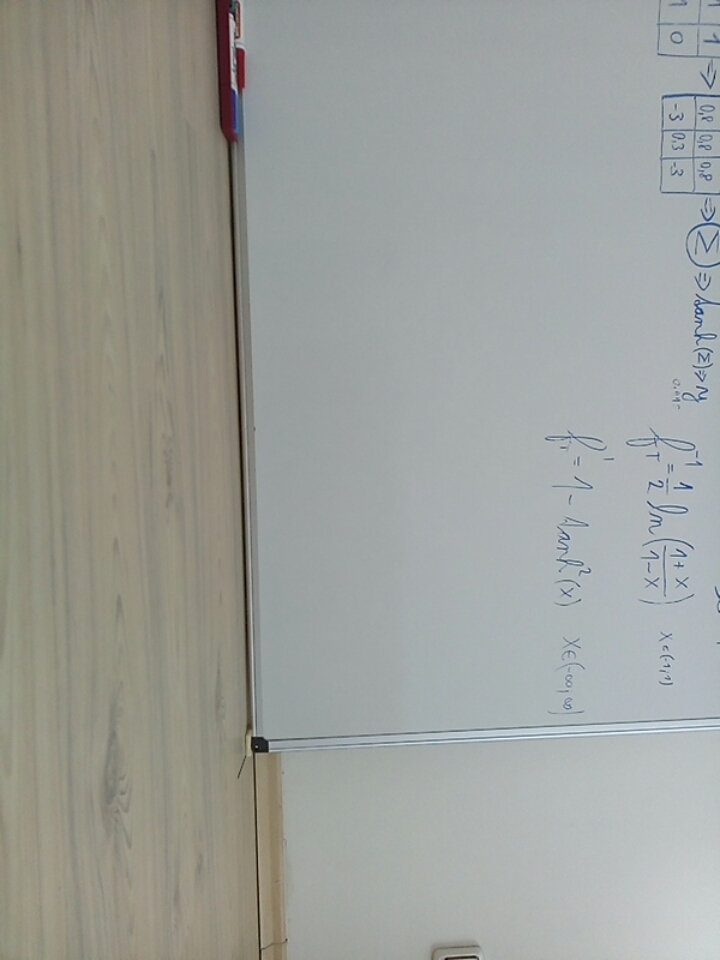 1 1
1 0
=> 0,8 0,8 0,8
-3 0,3 -3
=> Σ => tanh(Σ) => y
f_T^-1 = 1/2 ln((1+x)/(1-x)) x∈(-1,1)
f_T' = 1 - tanh²(x) x∈(-∞,∞)